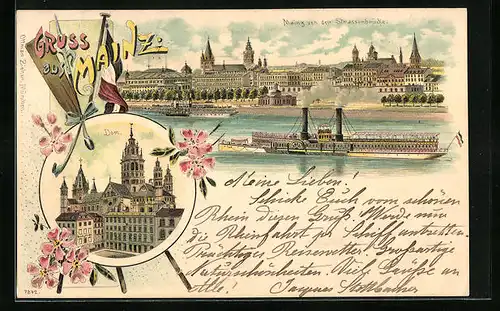 GRUSS
aus
MAINZ.
Mainz von der Strassenbrücke.
Dom.
Meine Lieben!
Schicke Euch vom schönen
Rhein diesen Gruß. Werde nun
die Rheinfahrt per Schiff antreten.
Prächtiges Reisewetter. Großartige
Naturschönheiten. Viele Grüße an
Alle! Jacques
7892.